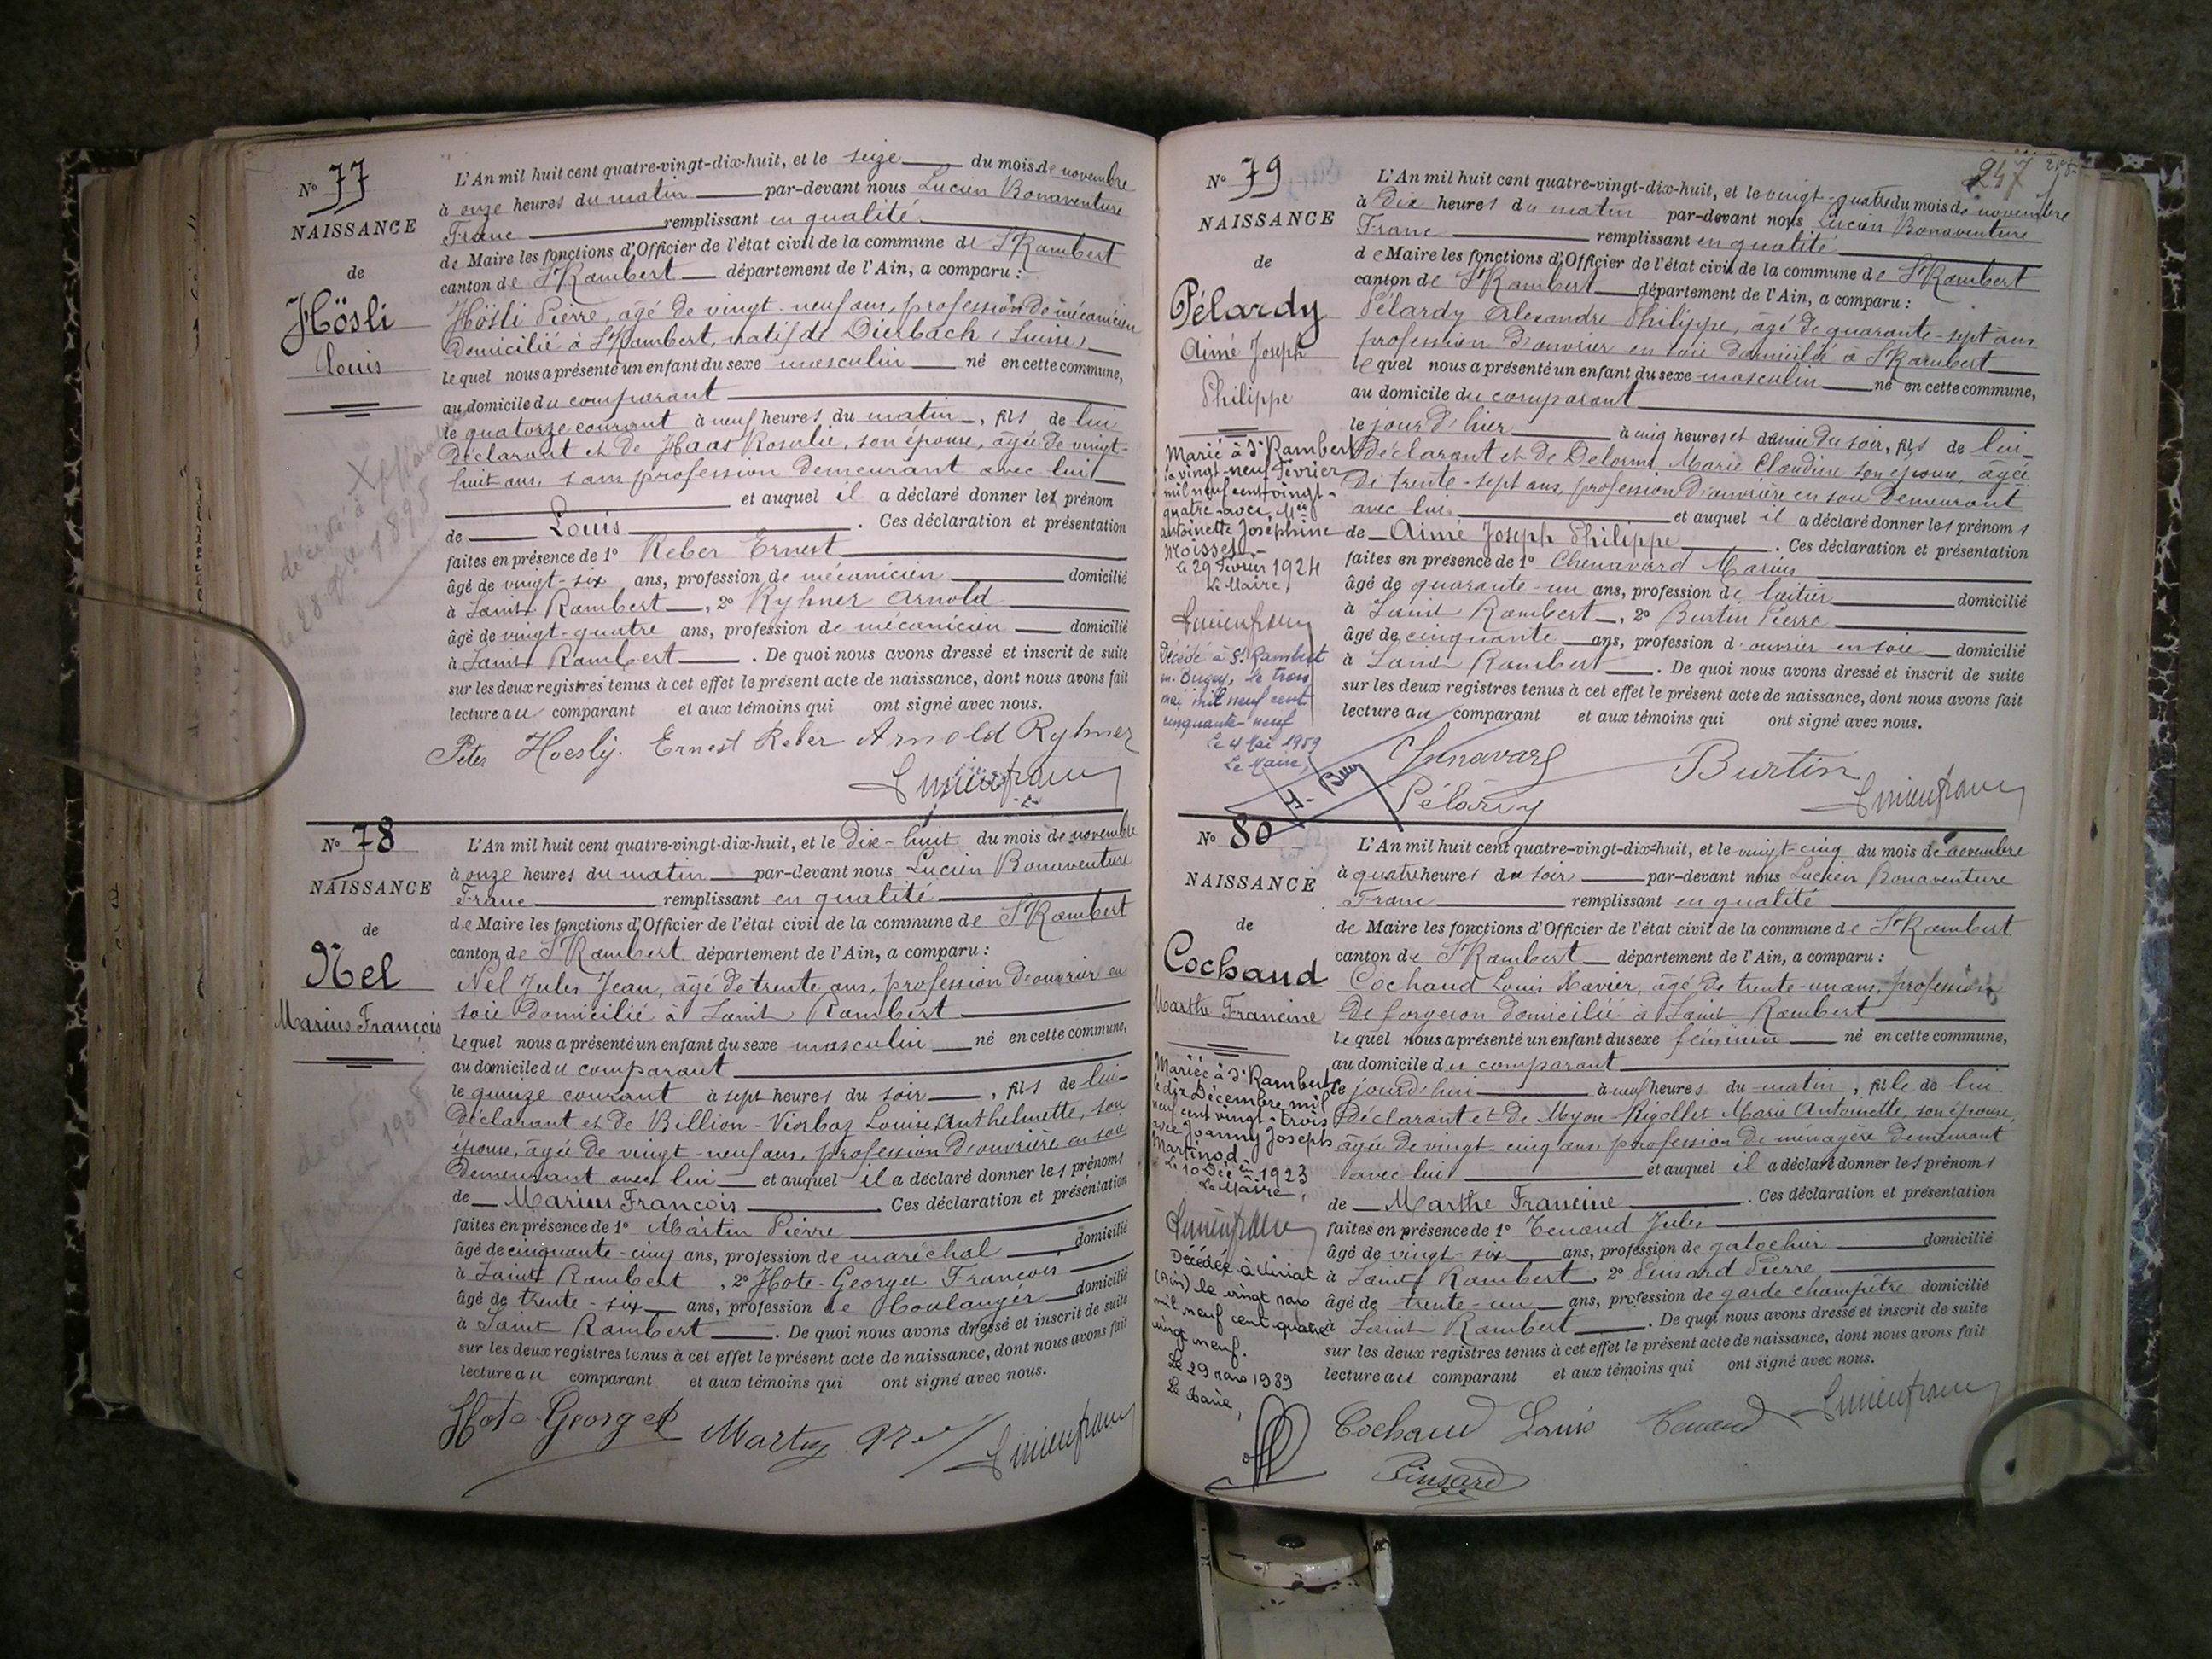 N° 77
NAISSANCE
de
Hösli
Louis
L'An mil huit cent quatre-vingt-dix-huit, et le seize du mois de novembre
à onze heures du matin par-devant nous Lucien Bonaventure
Franc remplissant en qualité
de Maire les fonctions d'Officier de l'état civil de la commune de St Rambert
canton de St Rambert département de l'Ain, a comparu :
Hösli Pierre, âgé de vingt-neuf ans, profession de mécanicien
domicilié à St Rambert, natif de Dierbach (Suisse)
lequel nous a présenté un enfant du sexe masculin né en cette commune,
au domicile du comparant
le quatorze courant à neuf heures du matin, fils de lui
déclarant et de Haas Rosalie, son épouse, âgée de vingt-
huit ans, sans profession demeurant avec lui
et auquel il a déclaré donner les prénom
de Louis. Ces déclaration et présentation
faites en présence de 1° Reber Ernest
âgé de vingt-six ans, profession de mécanicien domicilié
à Saint Rambert, 2° Ryhner Arnold
âgé de vingt-quatre ans, profession de mécanicien domicilié
à Saint Rambert. De quoi nous avons dressé et inscrit de suite
sur les deux registres tenus à cet effet le présent acte de naissance, dont nous avons fait
lecture au comparant et aux témoins qui ont signé avec nous.
décédé à
le 28 1898
Peter Hoesly. Ernest Reber Arnold Ryhner
Lucien franc
N° 78
NAISSANCE
de
Nel
Marius François
L'An mil huit cent quatre-vingt-dix-huit, et le dix-huit du mois de novembre
à onze heures du matin par-devant nous Lucien Bonaventure
Franc remplissant en qualité
de Maire les fonctions d'Officier de l'état civil de la commune de St Rambert
canton de St Rambert département de l'Ain, a comparu :
Nel Jules Jean, âgé de trente ans, profession d'ouvrier en
soie domicilié à Saint Rambert
lequel nous a présenté un enfant du sexe masculin né en cette commune,
au domicile du comparant
le quinze courant à sept heures du soir, fils de lui-
déclarant et de Billion-Viorbaz Louise Anthelmette, son
épouse, âgée de vingt-neuf ans, profession d'ouvrière en soie
demeurant avec lui et auquel il a déclaré donner les prénoms
de Marius François Ces déclaration et présentation
faites en présence de 1° Martin Pierre
âgé de cinquante-cinq ans, profession de maréchal domicilié
à Saint Rambert, 2° Hote-Georges François
âgé de trente-six ans, profession de boulanger domicilié
à Saint Rambert. De quoi nous avons dressé et inscrit de suite
sur les deux registres tenus à cet effet le présent acte de naissance, dont nous avons fait
lecture au comparant et aux témoins qui ont signé avec nous.
Hote-Georges Martin Lucien franc
247
N° 79
NAISSANCE
de
Pélardy
Aimé Joseph
Philippe
Marié à St Rambert
le vingt-neuf Février
mil neuf cent vingt-
quatre avec Mlle
Antoinette Joséphine
Moisset.
Le 29 Février 1924
Le Maire,
Lucien franc
Décédé à St Rambert
en Bugey, le trois
mai mil neuf cent
cinquante-neuf
Le 4 Mai 1959
Le Maire,
L'An mil huit cent quatre-vingt-dix-huit, et le vingt-quatre du mois de novembre
à dix heures du matin par-devant nous Lucien Bonaventure
Franc remplissant en qualité
de Maire les fonctions d'Officier de l'état civil de la commune de St Rambert
canton de St Rambert département de l'Ain, a comparu :
Pélardy Alexandre Philippe, âgé de quarante-sept ans
profession d'ouvrier en soie domicilié à St Rambert
lequel nous a présenté un enfant du sexe masculin né en cette commune,
au domicile du comparant
le jour d'hier à cinq heures et demie du soir, fils de lui-
déclarant et de Delorme Marie Claudine son épouse, âgée
de trente-sept ans, profession d'ouvrière en soie demeurant
avec lui et auquel il a déclaré donner les prénoms
de Aimé Joseph Philippe. Ces déclaration et présentation
faites en présence de 1° Chenavard Marius
âgé de quarante-un ans, profession de laitier domicilié
à Saint Rambert, 2° Burtin Pierre
âgé de cinquante ans, profession d'ouvrier en soie domicilié
à Saint Rambert. De quoi nous avons dressé et inscrit de suite
sur les deux registres tenus à cet effet le présent acte de naissance, dont nous avons fait
lecture au comparant et aux témoins qui ont signé avec nous.
Chenavard Burtin
Pélardy Lucien franc
N° 80
NAISSANCE
de
Cochaud
Marthe Francine
Mariée à St Rambert
le dix Décembre mil
neuf cent vingt-trois
avec Joanny Joseph
Martinod.
Le 10 Déc 1923
Le Maire,
Lucien franc
Décédée à Viriat
(Ain) le vingt mars
mil neuf cent quatre
vingt neuf.
Le 29 mars 1989
Le Maire,
L'An mil huit cent quatre-vingt-dix-huit, et le vingt-cinq du mois de novembre
à quatre heures du soir par-devant nous Lucien Bonaventure
Franc remplissant en qualité
de Maire les fonctions d'Officier de l'état civil de la commune de St Rambert
canton de St Rambert département de l'Ain, a comparu :
Cochaud Louis Xavier, âgé de trente-un ans, profession
de forgeron domicilié à Saint Rambert
lequel nous a présenté un enfant du sexe féminin né en cette commune,
au domicile du comparant
le jourd'hui à neuf heures du matin, fille de lui
déclarant et de Myon-Rigollet Marie Antoinette, son épouse,
âgée de vingt-cinq ans profession de ménagère demeurant
avec lui et auquel il a déclaré donner les prénoms
de Marthe Francine. Ces déclaration et présentation
faites en présence de 1° Tenand Jules
âgé de vingt-six ans, profession de galochier domicilié
à Saint Rambert, 2° Pinsard Pierre
âgé de trente-un ans, profession de garde champêtre domicilié
à Saint Rambert. De quoi nous avons dressé et inscrit de suite
sur les deux registres tenus à cet effet le présent acte de naissance, dont nous avons fait
lecture au comparant et aux témoins qui ont signé avec nous.
Cochaud Louis Tenand Lucien franc
Pinsard